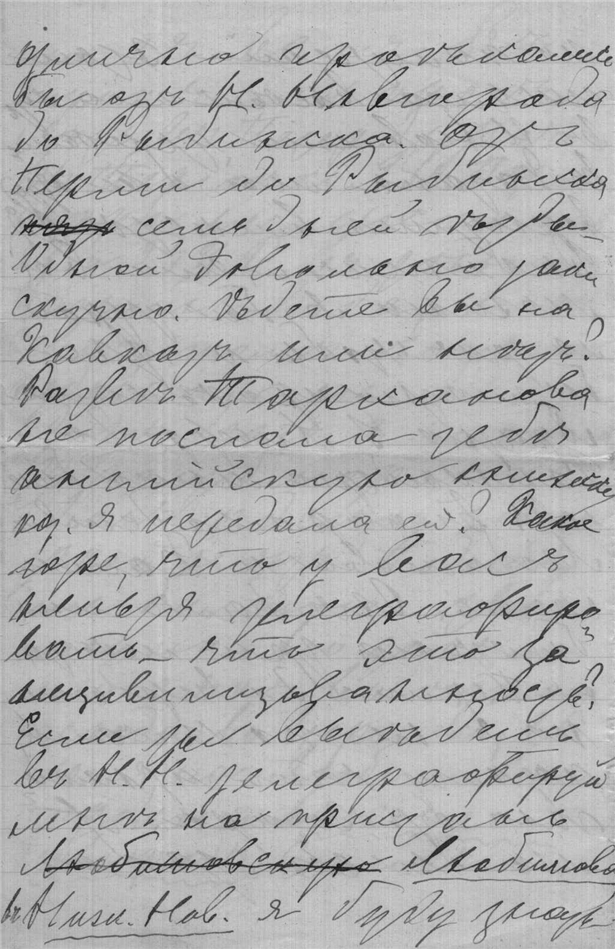 отлично проѣхались
бы отъ Н. Новгорода
до Рыбинска. Отъ
Перми до Рыбинска
семь дней ѣзды
Одной довольно таки
скучно. Ѣдете вы на
Кавказъ или нѣтъ?
Развѣ Тарханова
не послала тебѣ
английскую книжку
кот. я передала ей? Какое
горе, что у васъ
нельзя телеграфиро
вать – что это за
нецивилизованность?
Если ты выѣдешь
въ Н. Н. телеграфируй
мнѣ на пристань
Любимовскую Любимова
въ Ниж. Нов. я буду знать